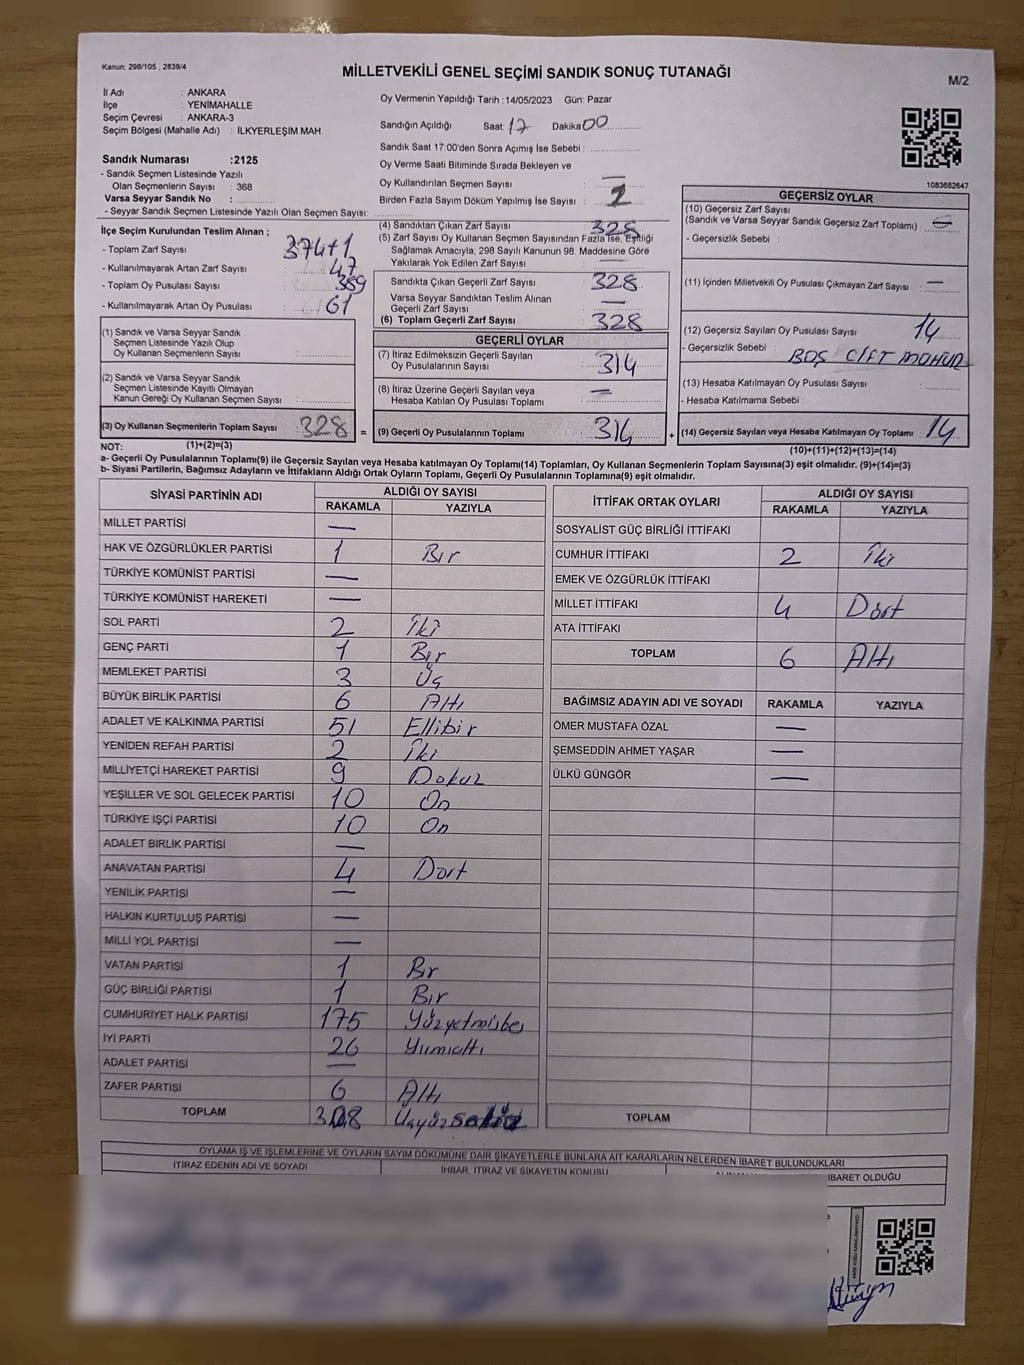 Kanun: 298/105 , 2839/4
MİLLETVEKİLİ GENEL SEÇİMİ SANDIK SONUÇ TUTANAĞI
M/2
İl Adı : ANKARA
İlçe : YENİMAHALLE
Seçim Çevresi : ANKARA-3
Seçim Bölgesi (Mahalle Adı) : İLKYERLEŞİM MAH.
Sandık Numarası :2125
- Sandık Seçmen Listesinde Yazılı
Olan Seçmenlerin Sayısı : 368
Varsa Seyyar Sandık No :
- Seyyar Sandık Seçmen Listesinde Yazılı Olan Seçmen Sayısı:
Oy Vermenin Yapıldığı Tarih :14/05/2023 Gün: Pazar
Sandığın Açıldığı Saat: 17 Dakika 00
Sandık Saat 17:00'den Sonra Açımış İse Sebebi :
Oy Verme Saati Bitiminde Sırada Bekleyen ve
Oy Kullandırılan Seçmen Sayısı : —
Birden Fazla Sayım Döküm Yapılmış İse Sayısı : 2
1083682647
İlçe Seçim Kurulundan Teslim Alınan ;
- Toplam Zarf Sayısı : 374+1
- Kullanılmayarak Artan Zarf Sayısı : 47
- Toplam Oy Pusulası Sayısı : 389
- Kullanılmayarak Artan Oy Pusulası : 61
(1) Sandık ve Varsa Seyyar Sandık
Seçmen Listesinde Yazılı Olup
Oy Kullanan Seçmenlerin Sayısı :
(2) Sandık ve Varsa Seyyar Sandık
Seçmen Listesinde Kayıtlı Olmayan
Kanun Gereği Oy Kullanan Seçmen Sayısı :
(3) Oy Kullanan Seçmenlerin Toplam Sayısı : 328 =
(1)+(2)=(3)
(4) Sandıktan Çıkan Zarf Sayısı : 328
(5) Zarf Sayısı Oy Kullanan Seçmen Sayısından Fazla İse, Eşitliği
Sağlamak Amacıyla, 298 Sayılı Kanunun 98. Maddesine Göre
Yakılarak Yok Edilen Zarf Sayısı : —
Sandıkta Çıkan Geçerli Zarf Sayısı : 328
Varsa Seyyar Sandıktan Teslim Alınan
Geçerli Zarf Sayısı : —
(6) Toplam Geçerli Zarf Sayısı : 328
GEÇERLİ OYLAR
(7) İtiraz Edilmeksizin Geçerli Sayılan
Oy Pusulalarının Sayısı : 314
(8) İtiraz Üzerine Geçerli Sayılan veya
Hesaba Katılan Oy Pusulası Toplamı : —
(9) Geçerli Oy Pusulalarının Toplamı : 314 +
GEÇERSİZ OYLAR
(10) Geçersiz Zarf Sayısı
(Sandık ve Varsa Seyyar Sandık Geçersiz Zarf Toplamı) :
- Geçersizlik Sebebi :
(11) İçinden Milletvekili Oy Pusulası Çıkmayan Zarf Sayısı : —
(12) Geçersiz Sayılan Oy Pusulası Sayısı : 14
- Geçersizlik Sebebi : BOŞ ÇİFT MÜHÜR
(13) Hesaba Katılmayan Oy Pusulası Sayısı :
- Hesaba Katılmama Sebebi :
(14) Geçersiz Sayılan veya Hesaba Katılmayan Oy Toplamı : 14
(10)+(11)+(12)+(13)=(14)
NOT:
a- Geçerli Oy Pusulalarının Toplamı(9) ile Geçersiz Sayılan veya Hesaba katılmayan Oy Toplamı(14) Toplamları, Oy Kullanan Seçmenlerin Toplam Sayısına(3) eşit olmalıdır. (9)+(14)=(3)
b- Siyasi Partilerin, Bağımsız Adayların ve İttifakların Aldığı Ortak Oyların Toplamı, Geçerli Oy Pusulalarının Toplamına(9) eşit olmalıdır.
SİYASİ PARTİNİN ADI ALDIĞI OY SAYISI
RAKAMLA YAZIYLA
MİLLET PARTİSİ —
HAK VE ÖZGÜRLÜKLER PARTİSİ 1 Bir
TÜRKİYE KOMÜNİST PARTİSİ —
TÜRKİYE KOMÜNİST HAREKETİ —
SOL PARTİ 2 İki
GENÇ PARTİ 1 Bir
MEMLEKET PARTİSİ 3 Üç
BÜYÜK BİRLİK PARTİSİ 6 Altı
ADALET VE KALKINMA PARTİSİ 51 Ellibir
YENİDEN REFAH PARTİSİ 2 İki
MİLLİYETÇİ HAREKET PARTİSİ 9 Dokuz
YEŞİLLER VE SOL GELECEK PARTİSİ 10 On
TÜRKİYE İŞÇİ PARTİSİ 10 On
ADALET BİRLİK PARTİSİ —
ANAVATAN PARTİSİ 4 Dört
YENİLİK PARTİSİ —
HALKIN KURTULUŞ PARTİSİ —
MİLLİ YOL PARTİSİ —
VATAN PARTİSİ 1 Bir
GÜÇ BİRLİĞİ PARTİSİ 1 Bir
CUMHURİYET HALK PARTİSİ 175 Yüzyetmişbeş
İYİ PARTİ 26 Yirmialtı
ADALET PARTİSİ —
ZAFER PARTİSİ 6 Altı
TOPLAM 308 Üçyüzsekiz
İTTİFAK ORTAK OYLARI ALDIĞI OY SAYISI
RAKAMLA YAZIYLA
SOSYALİST GÜÇ BİRLİĞİ İTTİFAKI
CUMHUR İTTİFAKI 2 İki
EMEK VE ÖZGÜRLÜK İTTİFAKI
MİLLET İTTİFAKI 4 Dört
ATA İTTİFAKI
TOPLAM 6 Altı
BAĞIMSIZ ADAYIN ADI VE SOYADI RAKAMLA YAZIYLA
ÖMER MUSTAFA ÖZAL —
ŞEMSEDDİN AHMET YAŞAR —
ÜLKÜ GÜNGÖR —
TOPLAM
OYLAMA İŞ VE İŞLEMLERİNE VE OYLARIN SAYIM DÖKÜMÜNE DAİR ŞİKAYETLERLE BUNLARA AİT KARARLARIN NELERDEN İBARET BULUNDUKLARI
İTİRAZ EDENİN ADI VE SOYADI İHBAR, İTİRAZ VE ŞİKAYETİN KONUSU İBARET OLDUĞU